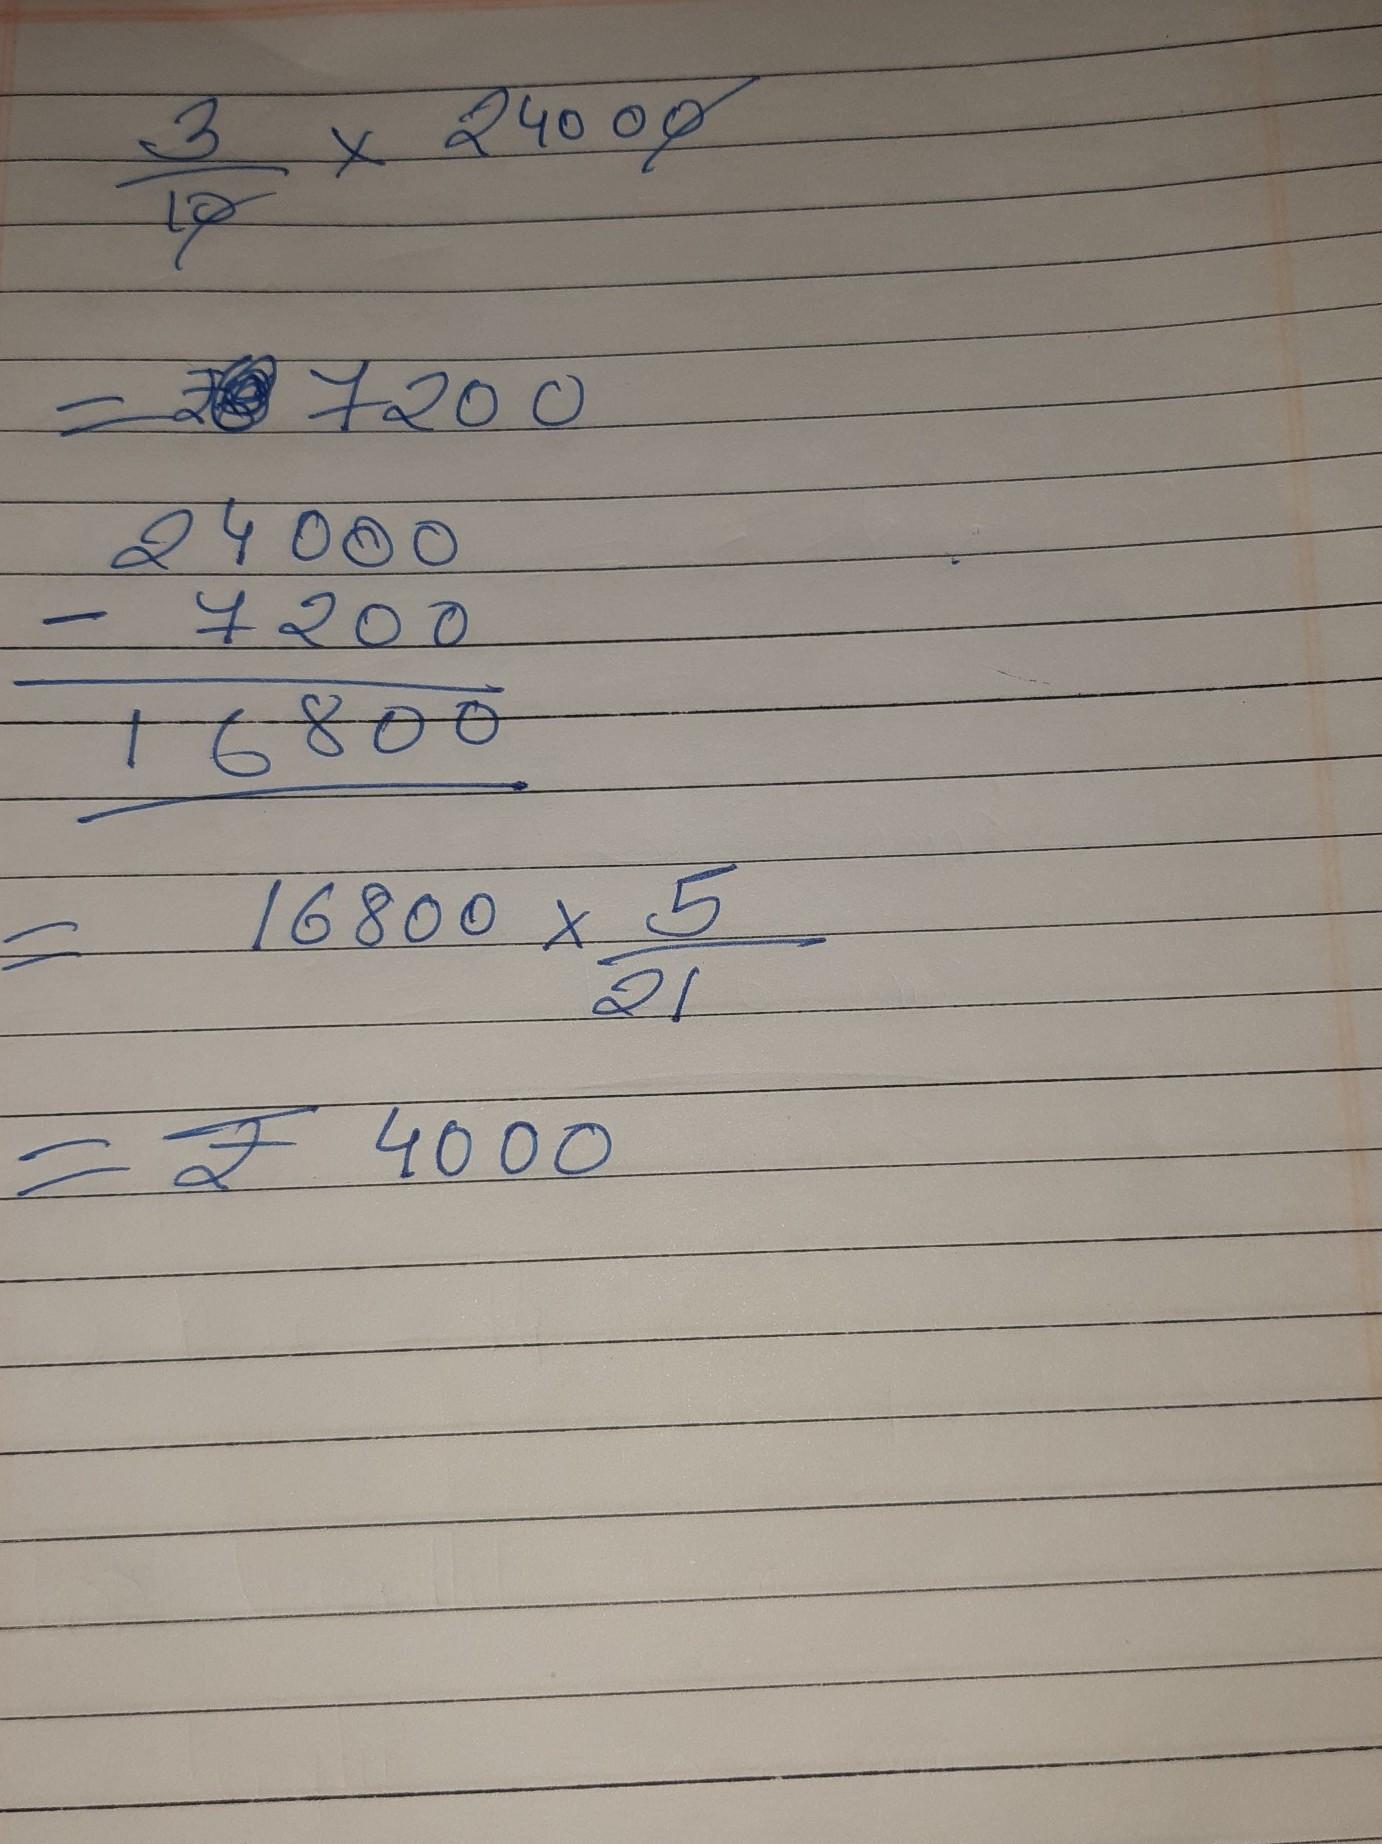 3/10 × 24000
= 7200
24000
- 7200
16800
= 16800 × 5/21
= ₹ 4000